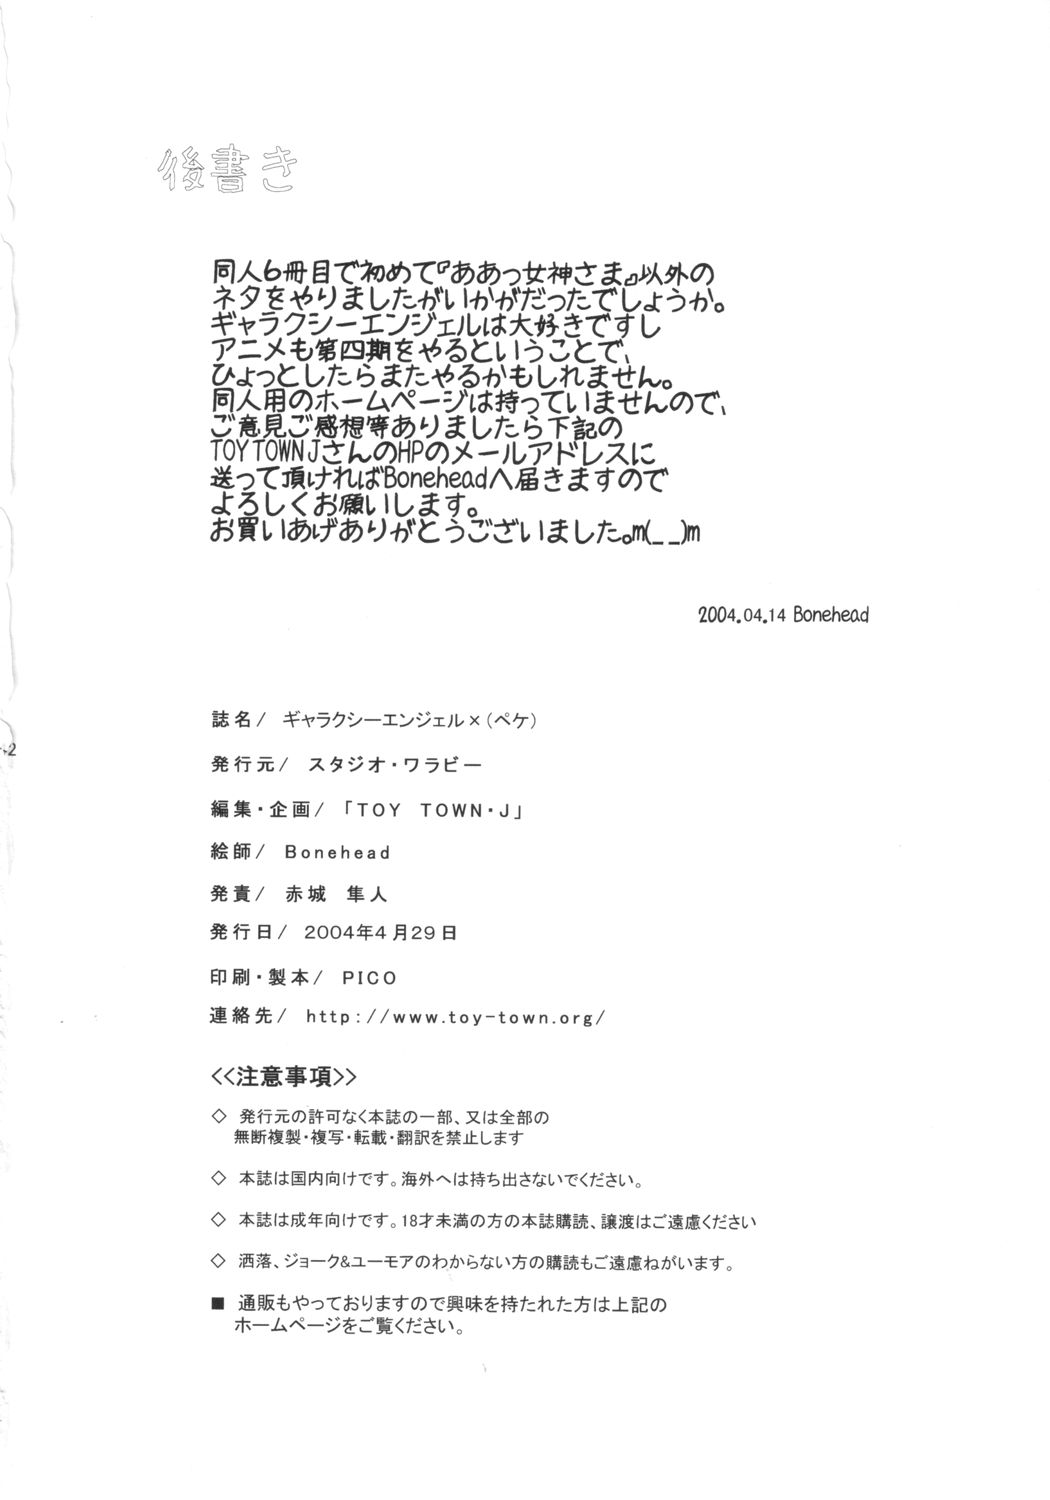 後書き
同人6冊目で初めて『ああっ女神さま』以外の
ネタをやりましたがいかがだったでしょうか。
ギャラクシーエンジェルは大好きですし
アニメも第四期をやるということで、
ひょっとしたらまたやるかもしれません。
同人用のホームページは持っていませんので、
ご意見ご感想等ありましたら下記の
TOYTOWNJさんのHPのメールアドレスに
送って頂ければBoneheadへ届きますので
よろしくお願いします。
お買いあげありがとうございました。m(_ _)m
2004.04.14 Bonehead
誌名/ ギャラクシーエンジェル×(ペケ)
発行元/ スタジオ・ワラビー
編集・企画/ 「TOY TOWN・J」
絵師/ Bonehead
発責/ 赤城 隼人
発行日/ 2004年4月29日
印刷・製本/ PICO
連絡先/ http://www.toy-town.org/
<<注意事項>>
◇ 発行元の許可なく本誌の一部、又は全部の
無断複製・複写・転載・翻訳を禁止します
◇ 本誌は国内向けです。海外へは持ち出さないでください。
◇ 本誌は成年向けです。18才未満の方の本誌購読、譲渡はご遠慮ください
◇ 洒落、ジョーク&ユーモアのわからない方の購読もご遠慮ねがいます。
■ 通販もやっておりますので興味を持たれた方は上記の
ホームページをご覧ください。